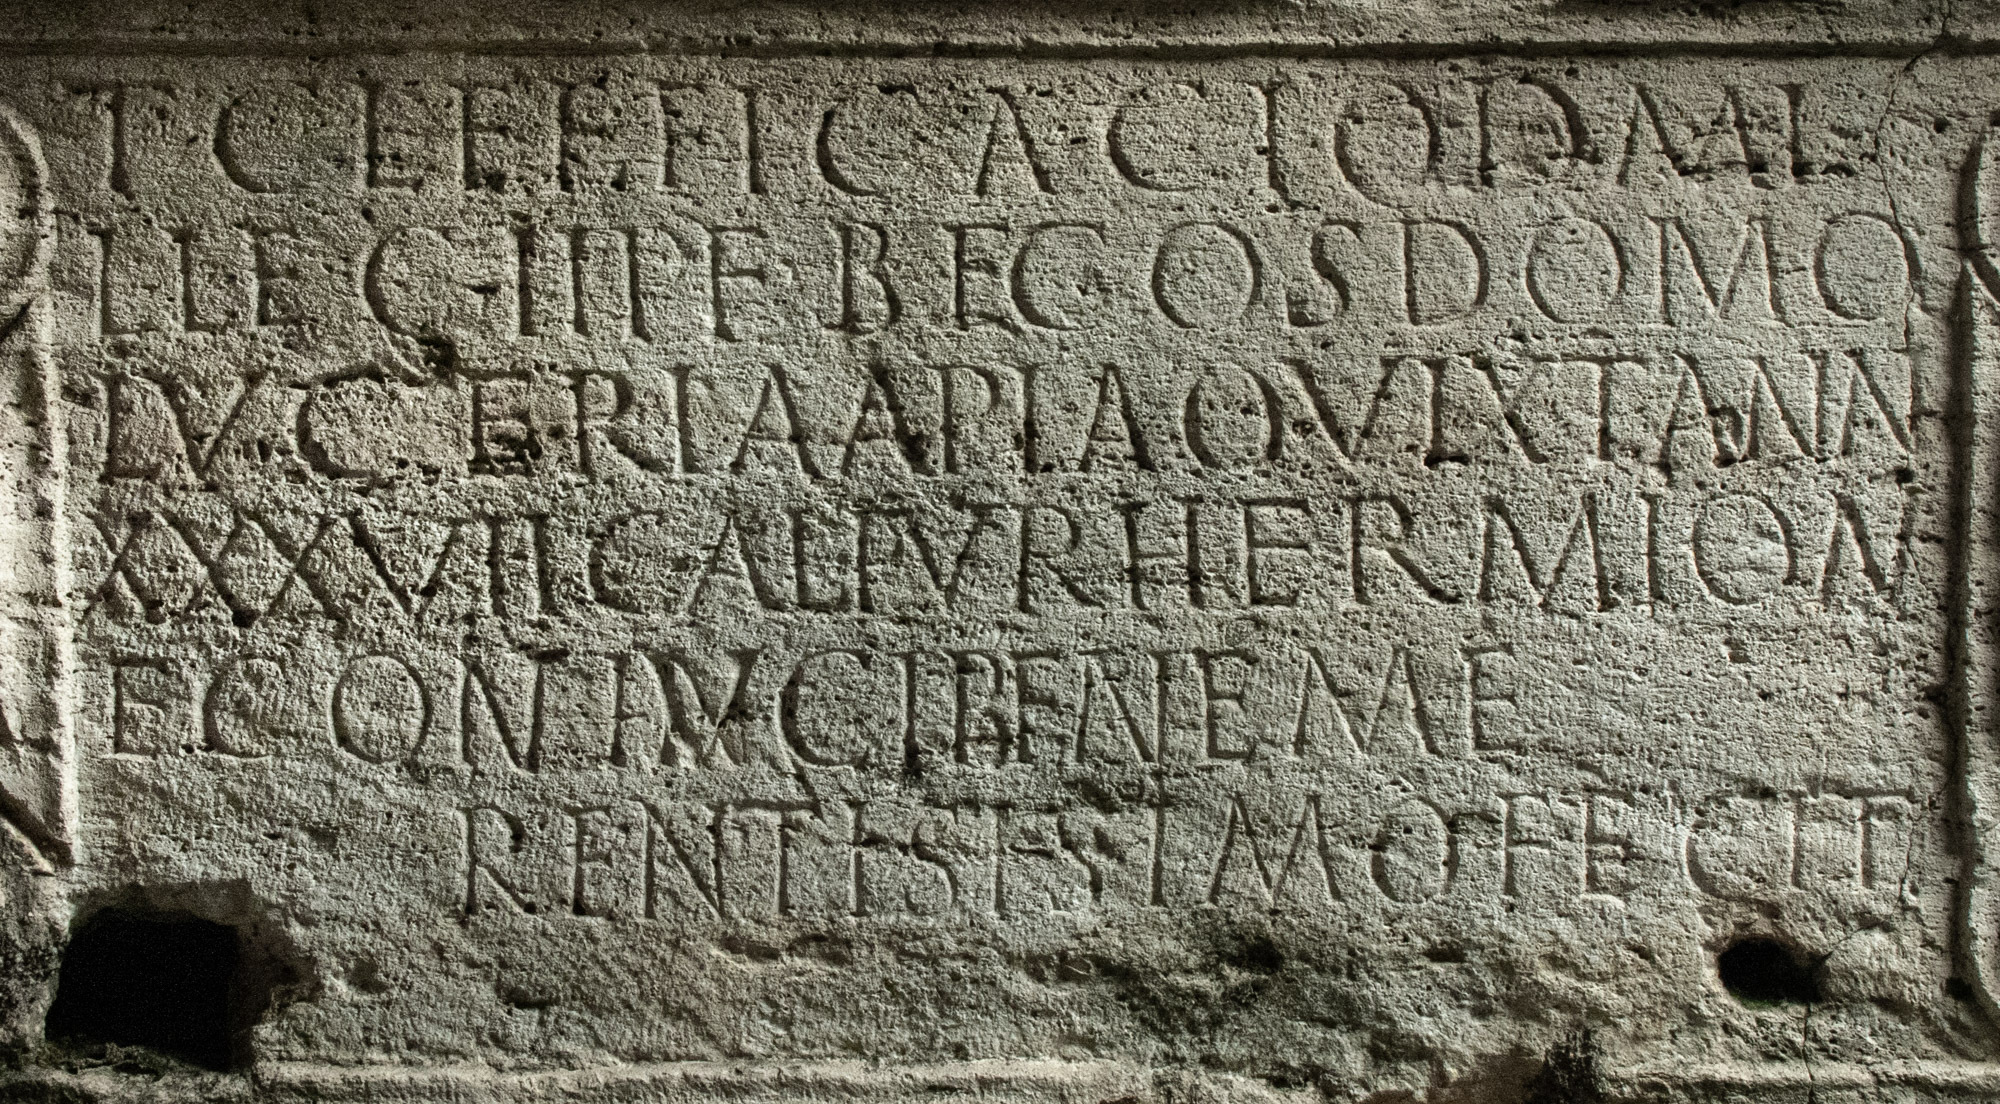 T CL EFFICACI QD MIL
LLEG II PF BF COS DOMO
LVCERIA APIA QVIXT ANN
XXXVII CALPVR HERMION
E CONIVGI BENE ME
RENTISISIMO FECIT